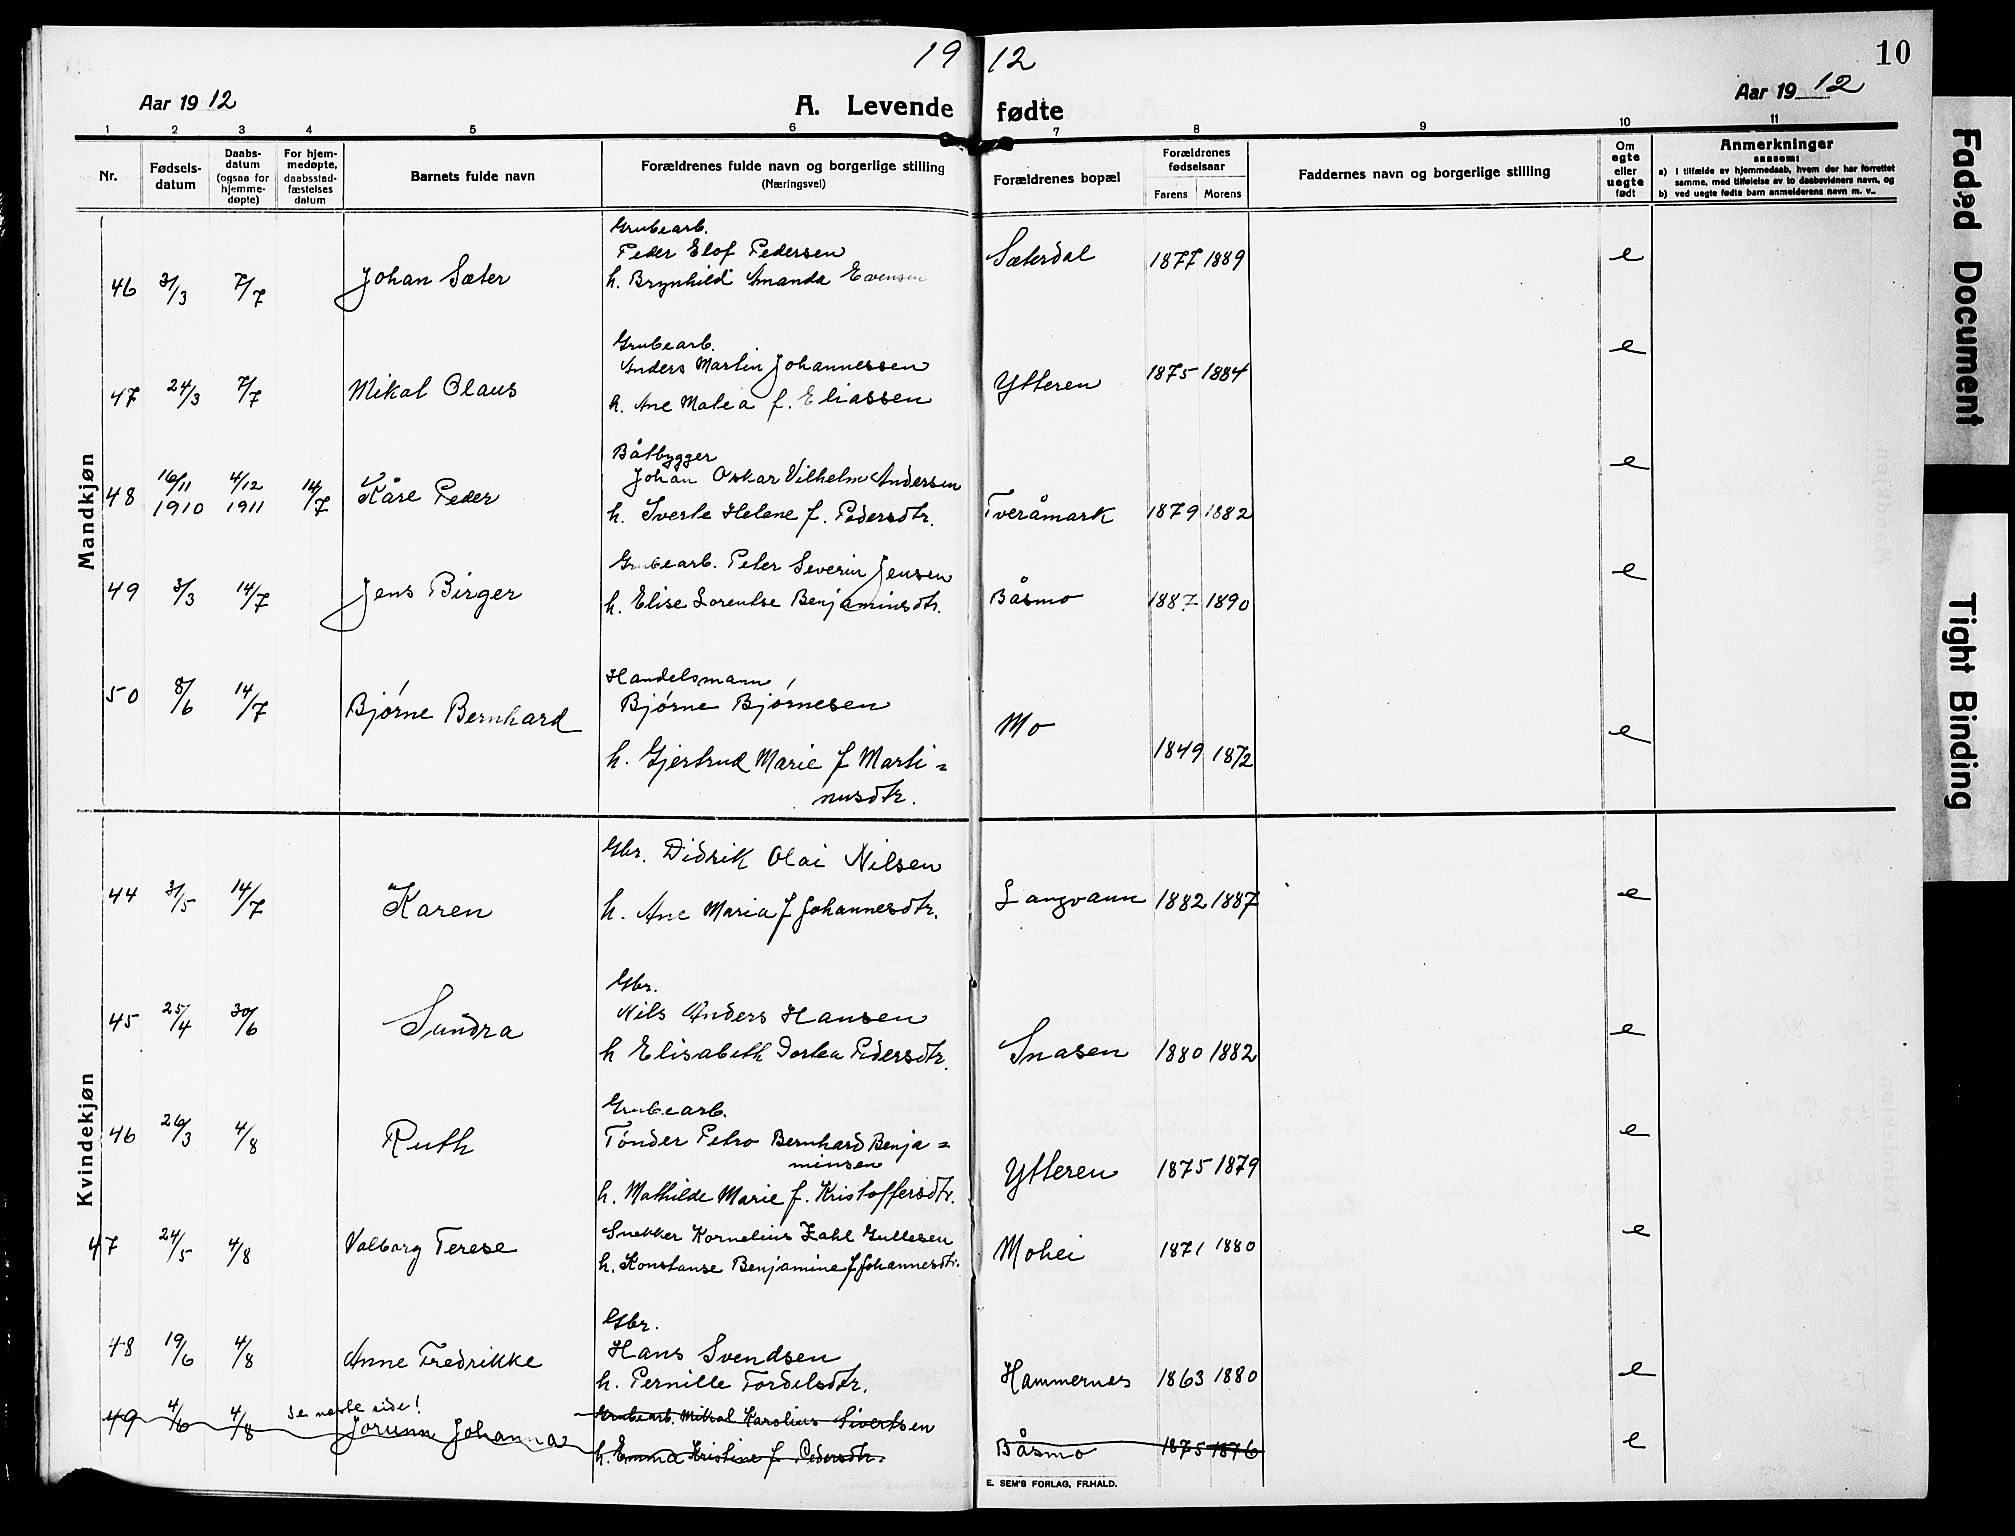 19 12
10
Aar 19 12
A. Levende fødte
Aar 19 12
1 2 3 4 5 6 7 8 9 10 11
Nr.
Fødsels-
datum
Daabs-
datum
(ogsaa for
hjemme-
døpte)
For hjem-
medøpte,
daabsstad-
fæstelses
datum
Barnets fulde navn
Forældrenes fulde navn og borgerlige stilling
(Næringsvei)
Forældrenes bopæl
Forældrenes
fødselsaar
Farens Morens
Faddernes navn og borgerlige stilling
Om
egte
eller
uegte
født
Anmerkninger
saasom:
a) i tilfælde av hjemmedaab, hvem der har forrettet
samme, med tilføielse av to daabsvidners navn, og
b) ved uegte fødte barn anmelderens navn m. v..
Mandkjøn
Grubearb.
Peder Elof Pedersen
46 31/3 7/7 Johan Sæter h. Brynhild Amanda Evensen Sæterdal 1877 1889 e
Grubearb.
Anders Martin Johannessen
47 24/3 7/7 Mikal Olaus h. Ane Malea f. Eliassen Ytteren 1875 1884 e
Båtbygger
Johan Oskar Vilhelm Andersen
48 16/11 1910 4/12 1911 14/7 Kåre Peder h. Sverte Helene f. Pedersdtr. Tveråmark 1879 1882 e
Grubearb. Peter Severin Jensen
49 3/3 14/7 Jens Birger h. Elise Lorentse Benjaminsdtr. Båsmo 1887 1890 e
Handelsmann
Bjørne Bjørnesen
50 8/6 14/7 Bjørne Bernhard h. Gjertrud Marie f Marti=
nusdtr. Mo 1849 1872 e
Kvindekjøn
Gbr. Didrik Olai Nilsen
44 31/5 14/7 Karen h. Ane Maria f Johannesdtr. Langvann 1882 1887 e
Gbr.
Nils Anders Hansen
45 25/4 30/6 Sundra h Elisabeth Dortea Pedersdtr. Snasen 1880 1882 e
Grubearb.
Tønder Petro Bernhard Benja=
minsen
46 26/3 4/8 Ruth h. Mathilde Marie f. Kristoffersdtr. Ytteren 1875 1879 e
Snekker Kornelius Zahl Gullesen
47 24/5 4/8 Valborg Terese h. Konstanse Benjamine f Johannesdtr. Mohei 1871 1880 e
Gbr.
Hans Svendsen
48 19/6 4/8 Anne Fredrikke h. Pernille Tordelsdtr. Hammernes 1863 1880 e
se neste side!
Grubearb. Mikal Karolius Sivertsen
49 4/6 4/8 Jorunn Johanna h. Emma Kristine f Pedersdtr. Båsmo 1875 1876 e
E. SEM'S FORLAG, FR.HALD.
Faded Document
Tight Binding